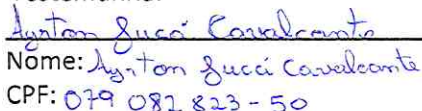 Ayrton Succi Cavalcante
Nome: Ayrton Succi Cavalcante
CPF: 079 082 823 - 50